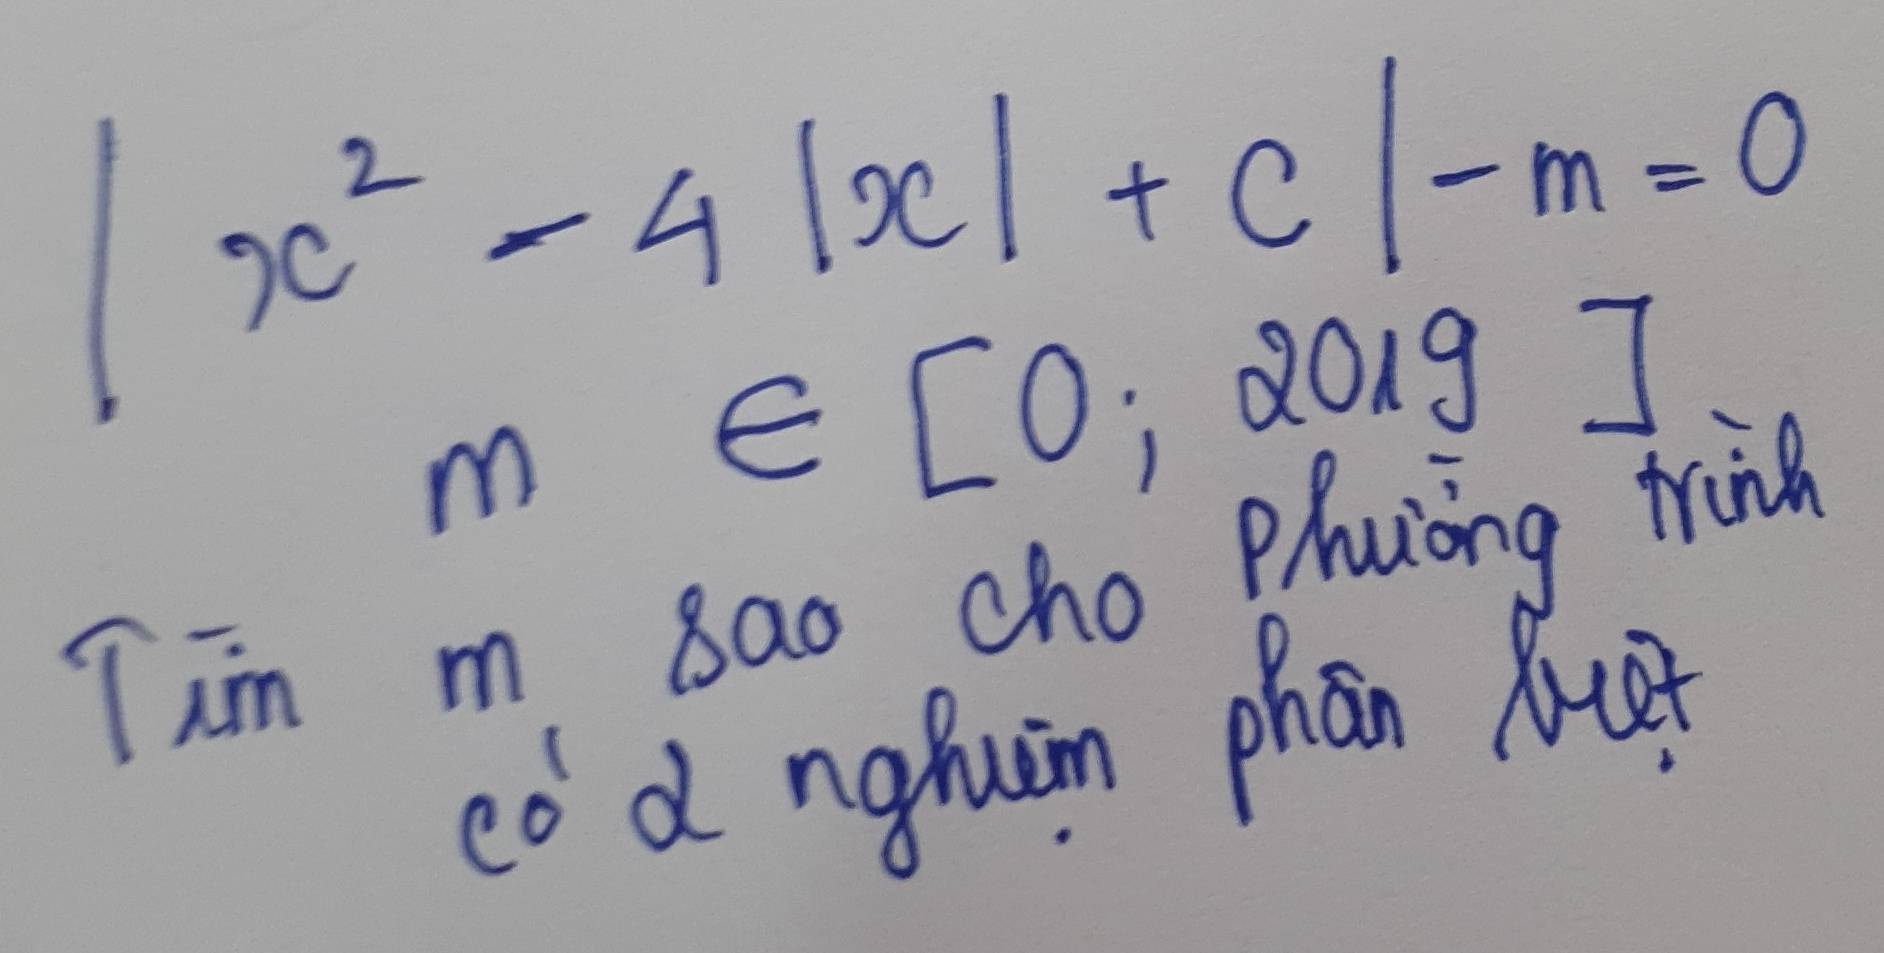 | x² - 4 |x| + c | - m = 0
m ∈ [0; 2019]
Tìm m sao cho phương trình
có 2 nghiệm phân biệt